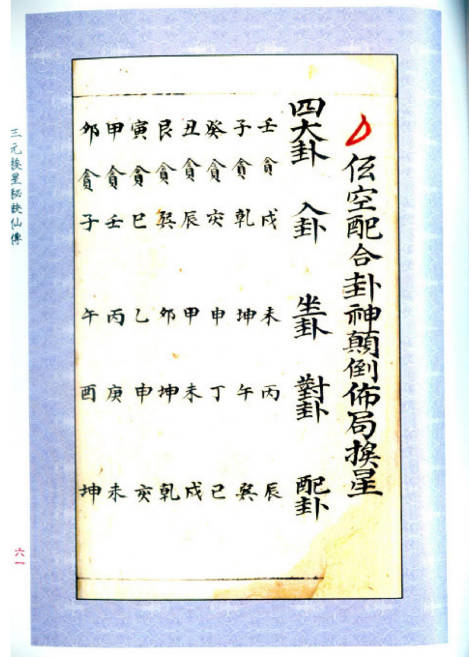 伭空配合卦神顛倒佈局挨星
四大卦 入卦 坐卦 對卦 配卦
壬貪戌 未 丙 辰
子貪乾 坤 午 巽
癸貪亥 申 丁 巳
丑貪辰 甲 未 戌
艮貪巽 卯 坤 乾
寅貪巳 乙 申 亥
甲貪壬 丙 庚 未
卯貪子 午 酉 坤
三元挨星秘訣仙傳
六一